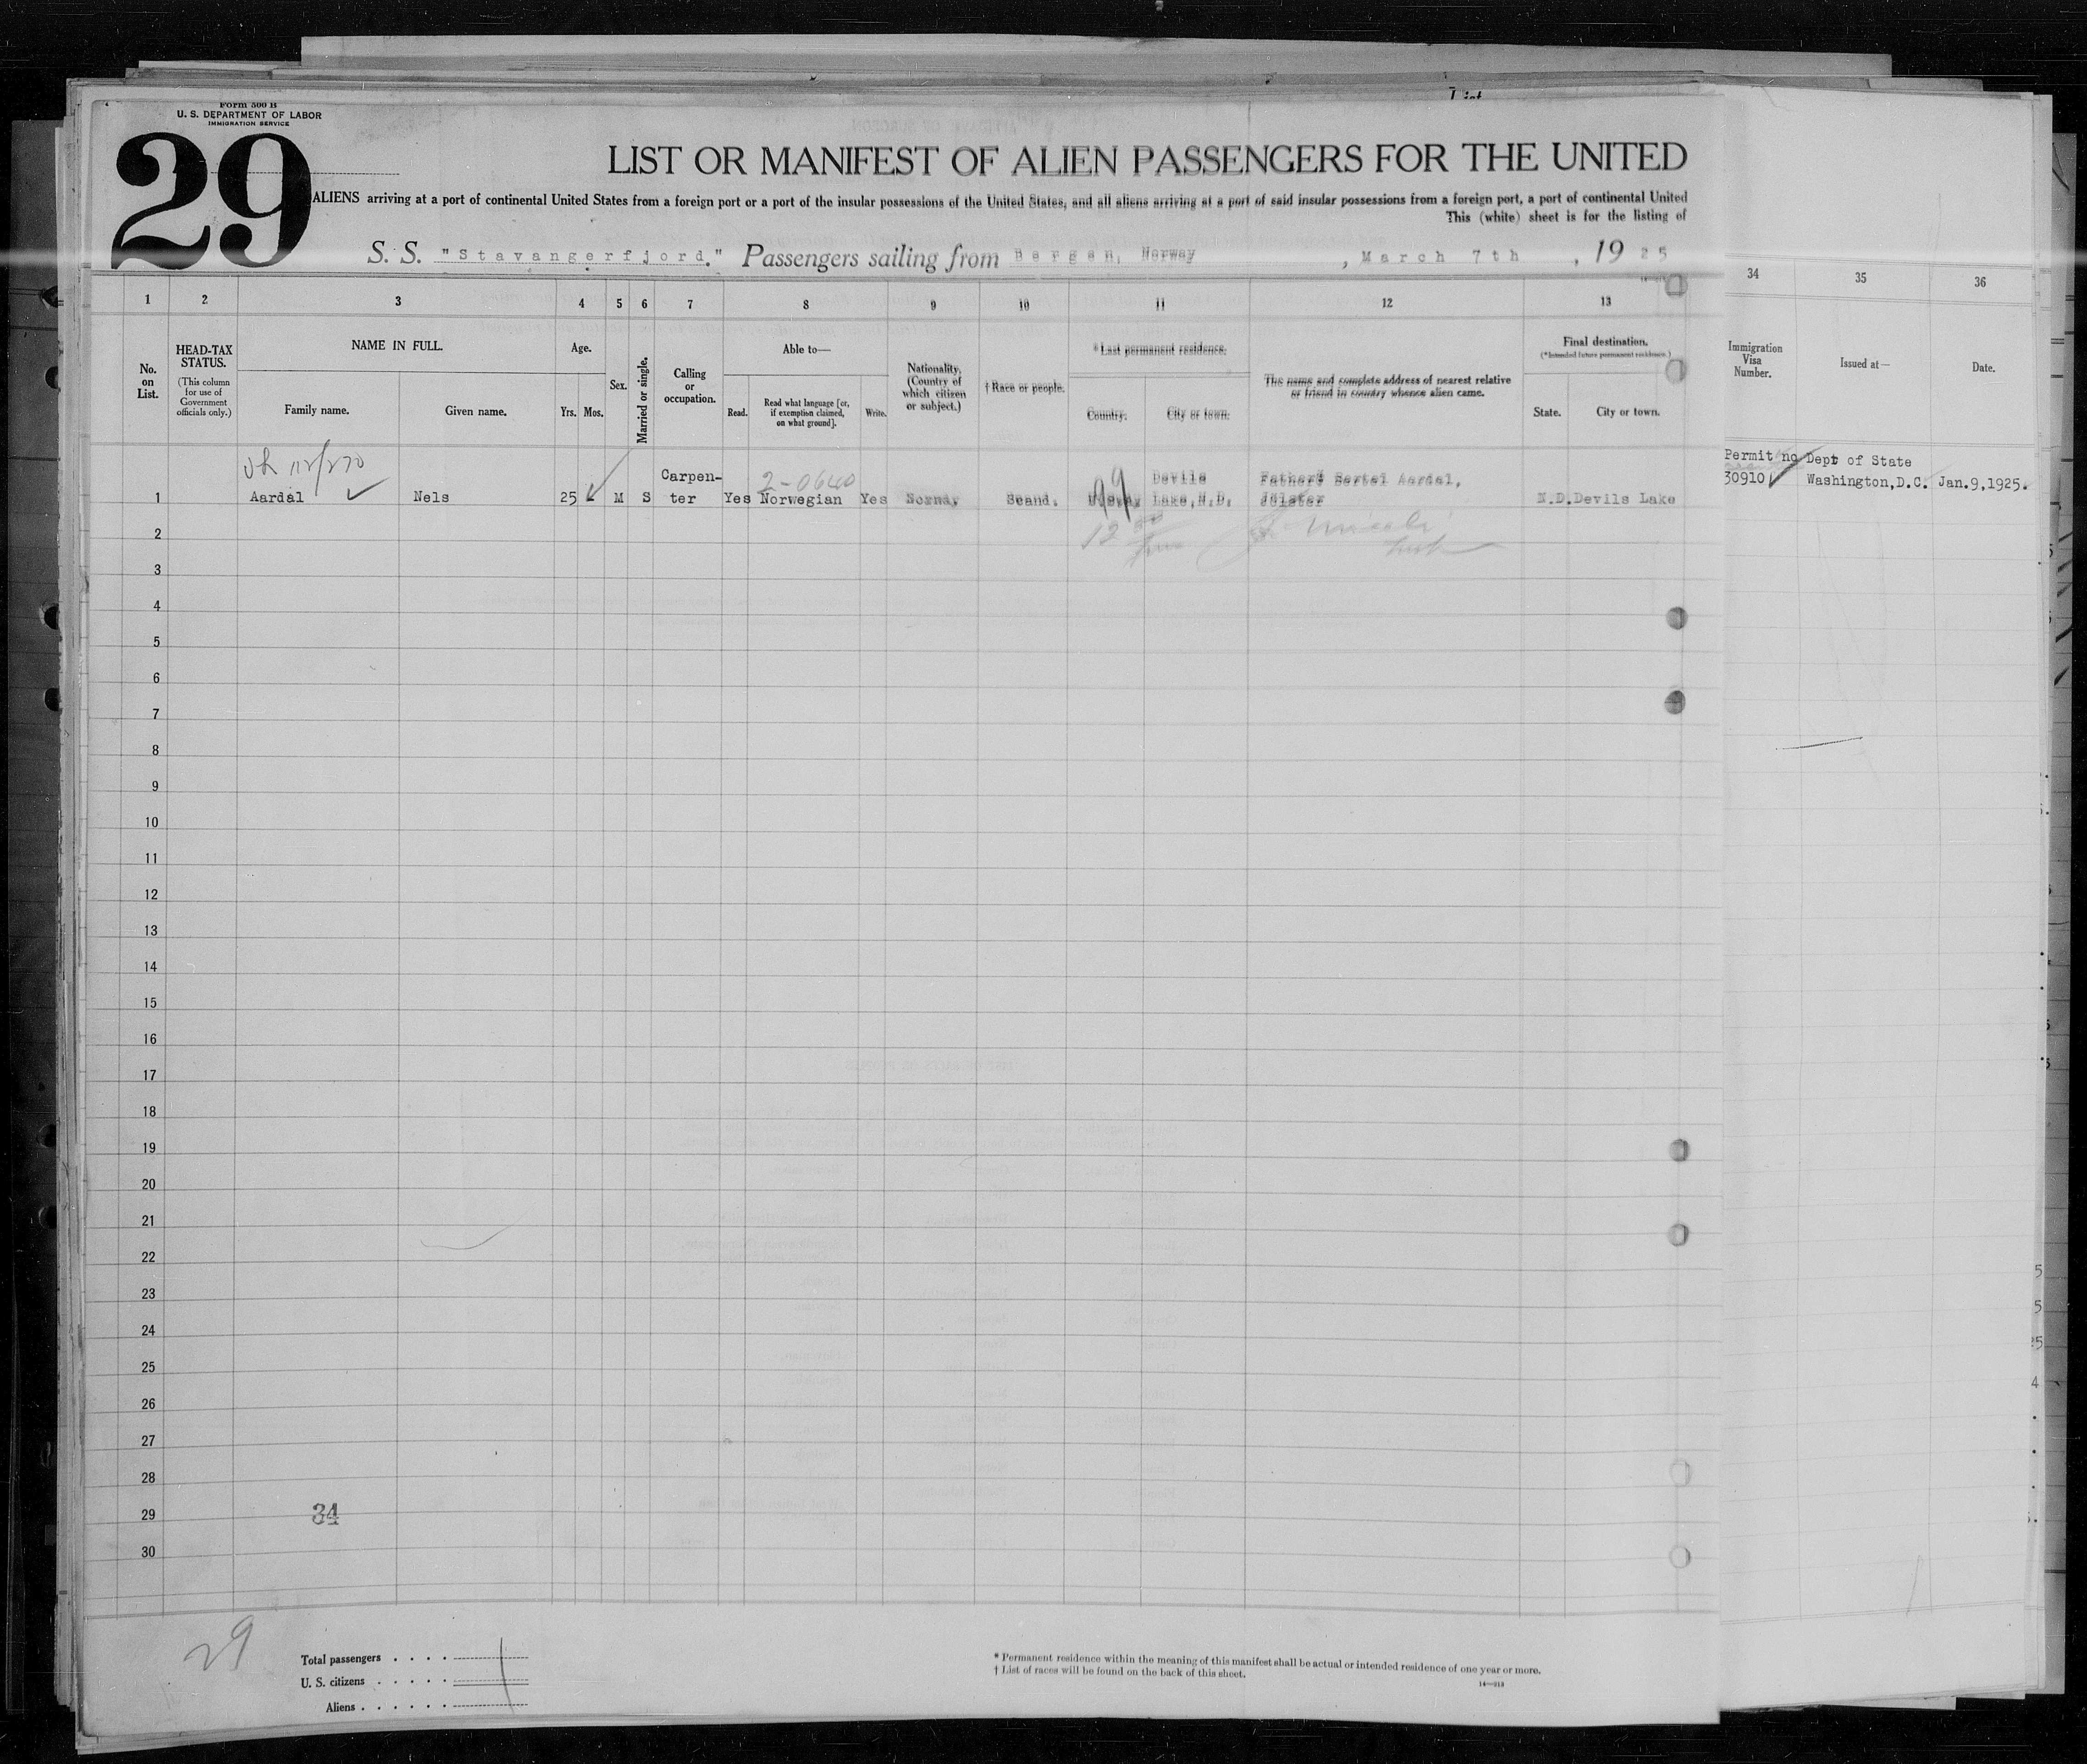 Form 500 B
U. S. DEPARTMENT OF LABOR
IMMIGRATION SERVICE
29
List
LIST OR MANIFEST OF ALIEN PASSENGERS FOR THE UNITED
ALIENS arriving at a port of continental United States from a foreign port or a port of the insular possessions of the United States, and all aliens arriving at a port of said insular possessions from a foreign port, a port of continental United
This (white) sheet is for the listing of
S. S. "Stavangerfjord." Passengers sailing from Bergen, Norway, March 7th, 1925
1 2 3 4 5 6 7 8 9 10 11 12 13 34 35 36
No. on List.
HEAD-TAX STATUS.
(This column for use of Government officials only.)
NAME IN FULL.
Family name.
Given name.
Age.
Yrs. Mos.
Sex.
Married or single.
Calling or occupation.
Able to—
Read.
Read what language [or, if exemption claimed, on what ground].
Write.
Nationality. (Country of which citizen or subject.)
† Race or people.
* Last permanent residence.
Country.
City or town.
The name and complete address of nearest relative or friend in country whence alien came.
Final destination.
(*Intended future permanent residence.)
State.
City or town.
Immigration Visa Number.
Issued at—
Date.
2-0640
1 Aardal Nels 25 M S Carpenter Yes Norwegian Yes Norway Scand. Devils Lake, N.D. Father: Bertel Aardal, Jölster N.D. Devils Lake
Permit no 30910 Dept of State Washington, D.C. Jan.9,1925.
2
3
4
5
6
7
8
9
10
11
12
13
14
15
16
17
18
19
20
21
22
23
24
25
26
27
28
29 34
30
29
Total passengers . . . .
U. S. citizens . . . . .
Aliens . . . . . .
* Permanent residence within the meaning of this manifest shall be actual or intended residence of one year or more.
† List of races will be found on the back of this sheet.
14—213